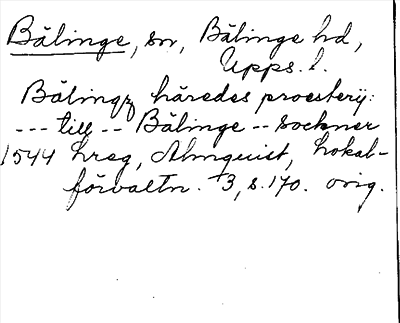 Bälinge, sn, Bälinge hd,
Upps. l.
Bälingz häredes proesterij:
--- till -- Bälinge -- sockner
1544 hreg, Almquist, Lokal-
förvaltn. 3, s. 170. orig.